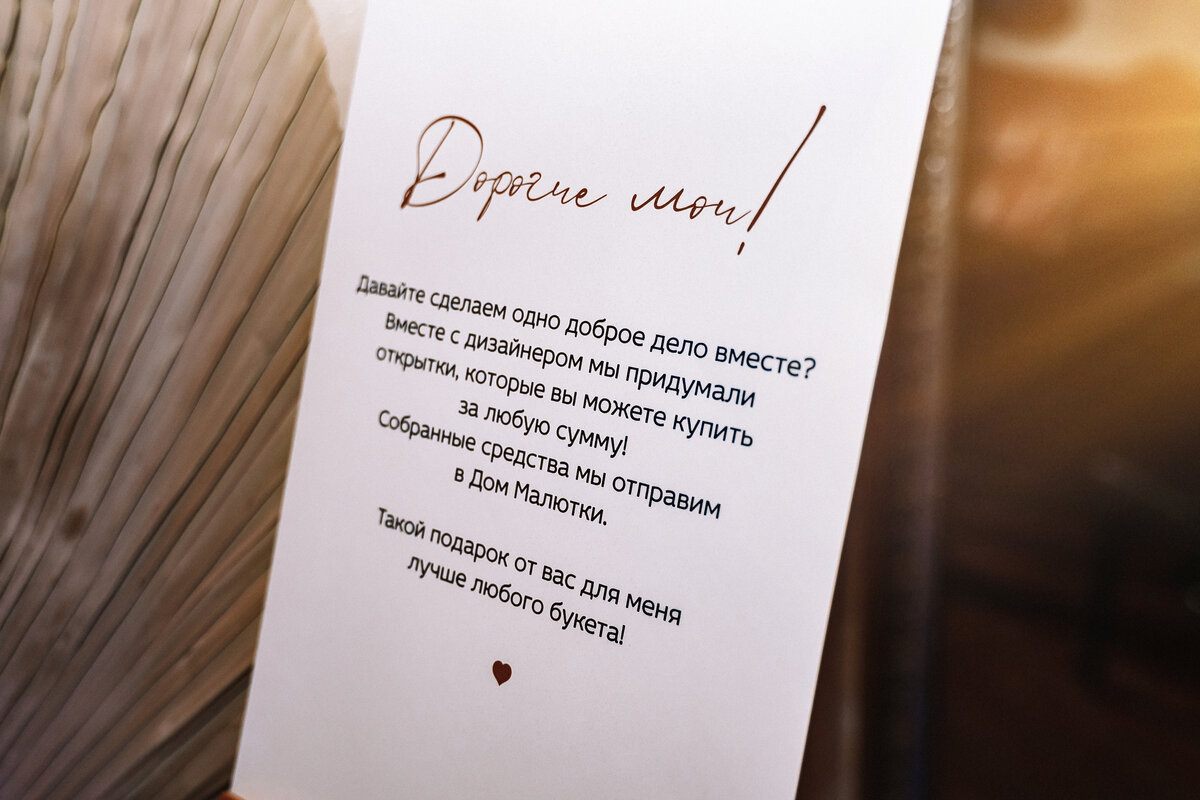 Дорогие мои!
Давайте сделаем одно доброе дело вместе?
Вместе с дизайнером мы придумали
открытки, которые вы можете купить
за любую сумму!
Собранные средства мы отправим
в Дом Малютки.
Такой подарок от вас для меня
лучше любого букета!